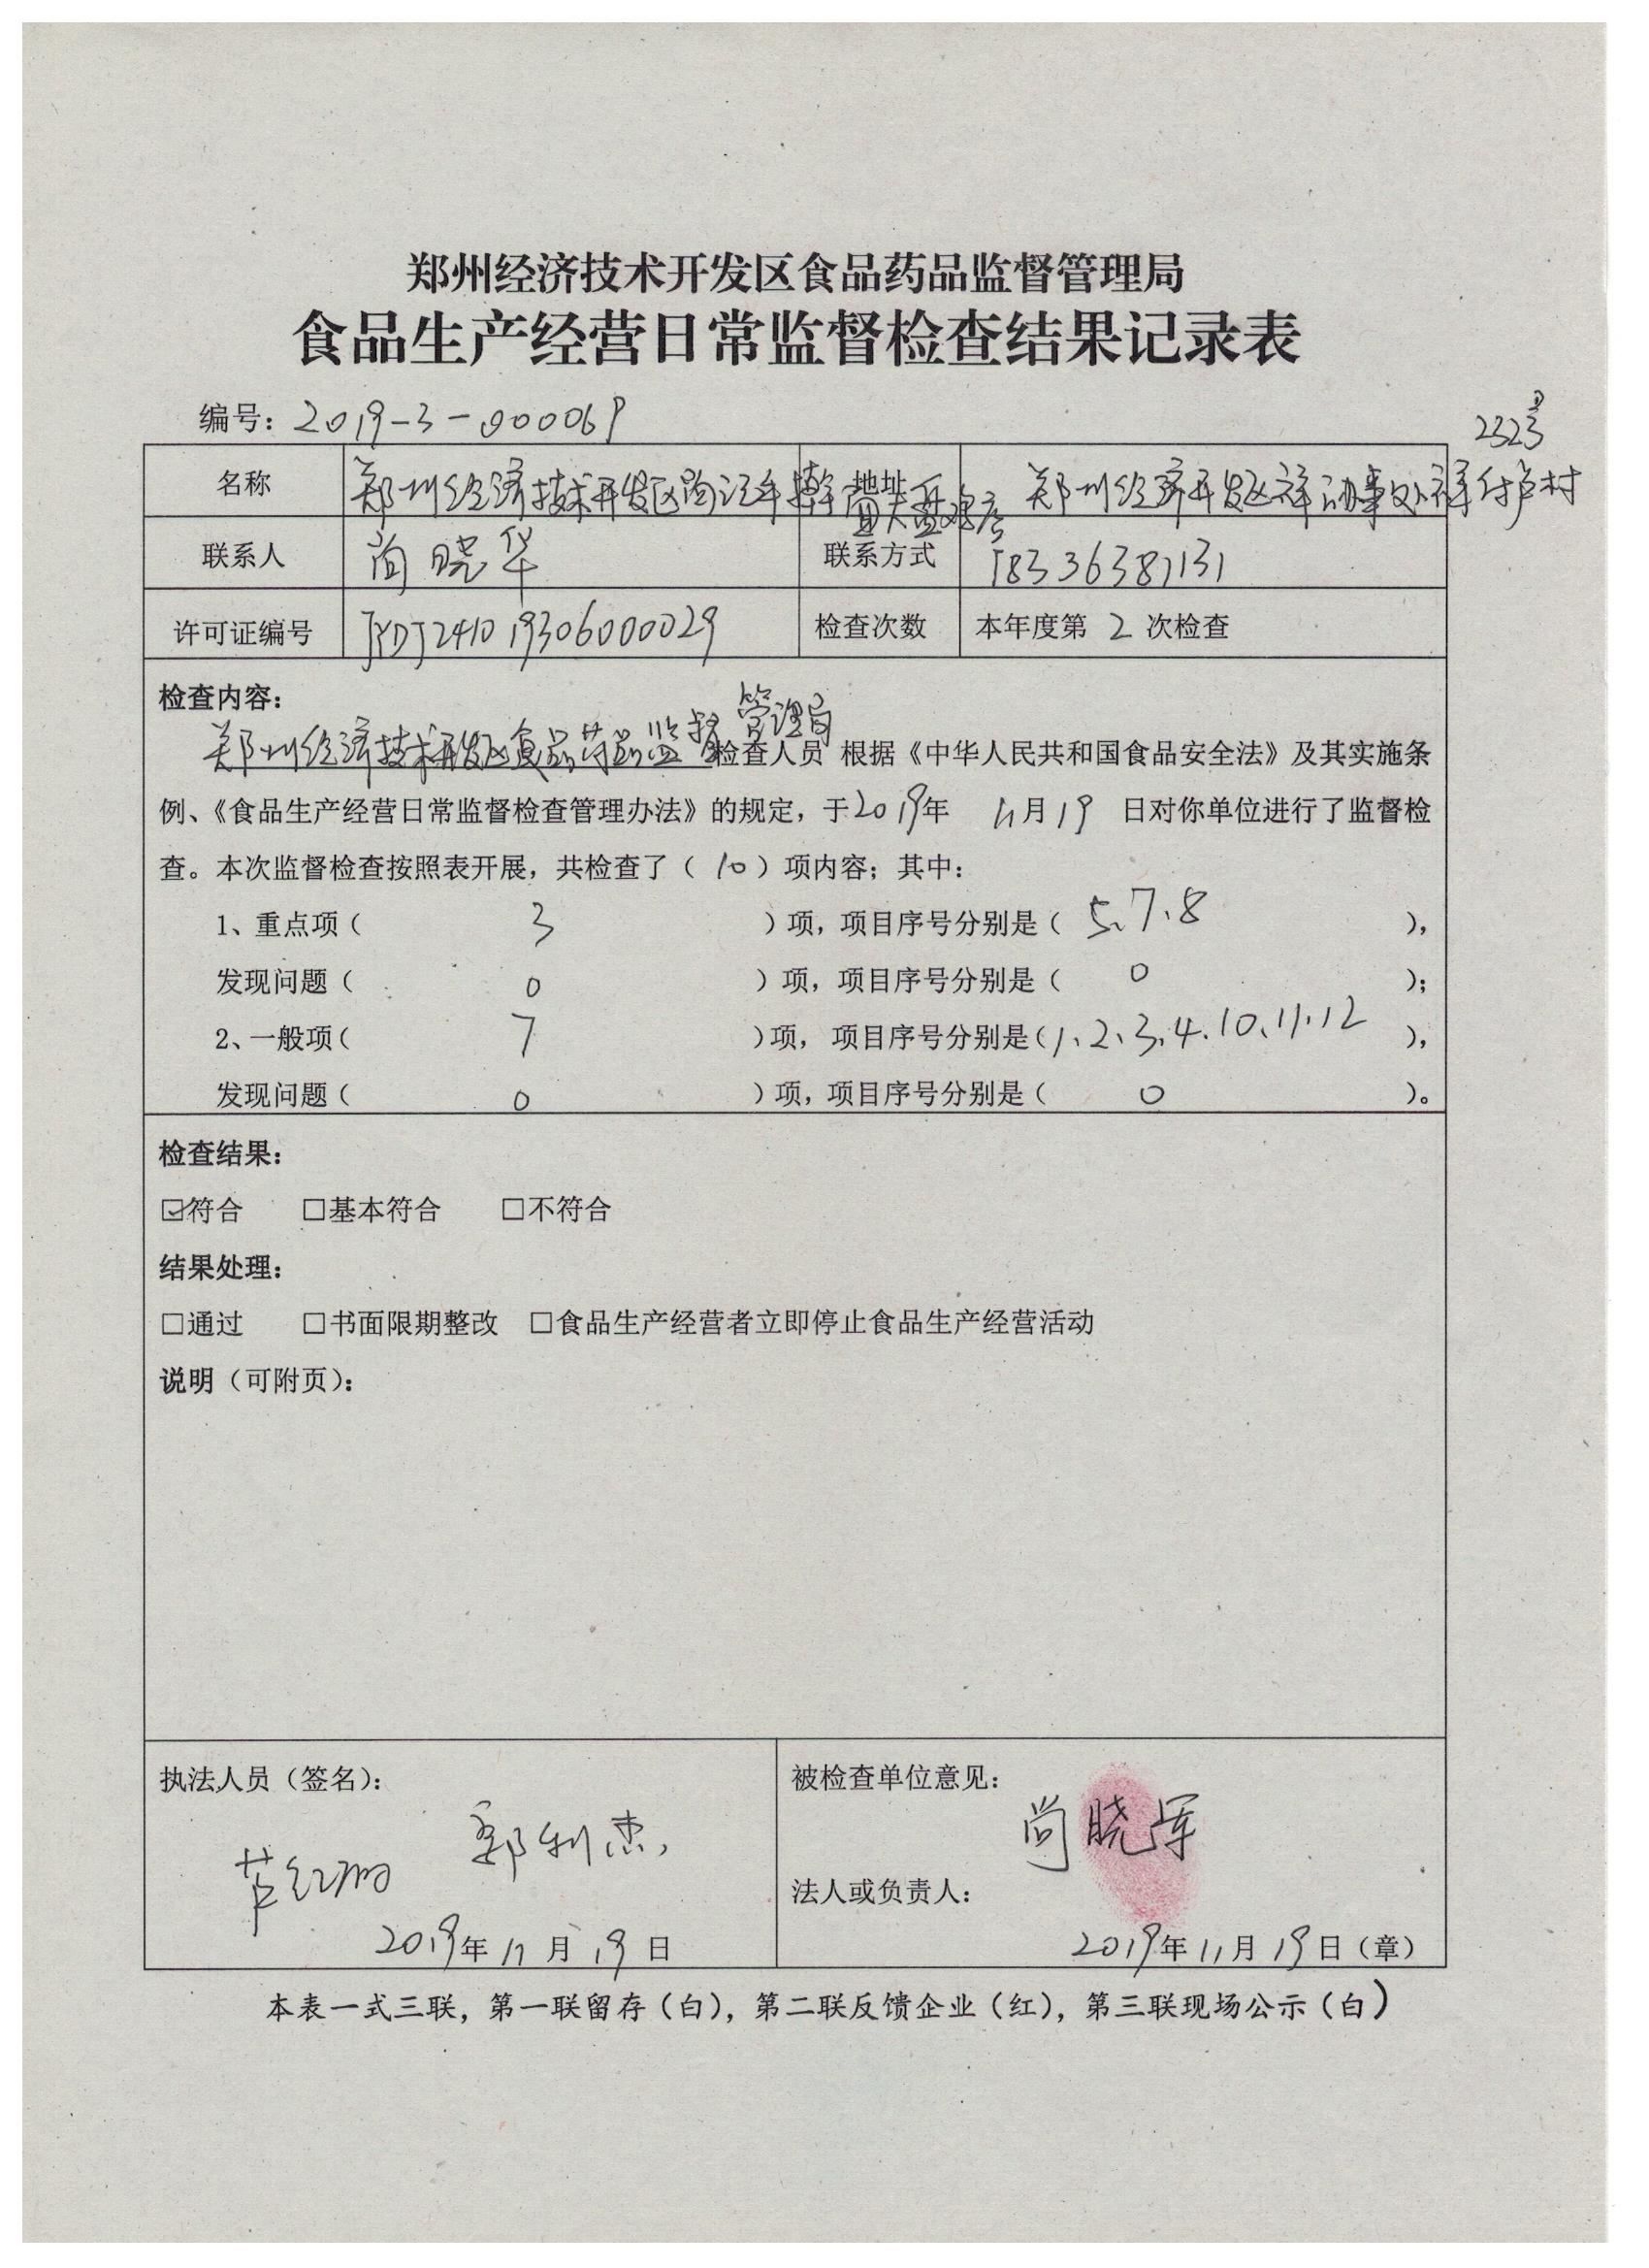 郑州经济技术开发区食品药品监督管理局
食品生产经营日常监督检查结果记录表
编号：2019-3-000069
232号
名称 郑州经济技术开发区 地址 郑州经济开发区祥云办事处
联系人 尚晓华 联系方式 18336387131
许可证编号 JYDJ241019306000029 检查次数 本年度第 2 次检查
检查内容：
郑州经济技术开发区食品药品监督管理局检查人员 根据《中华人民共和国食品安全法》及其实施条
例、《食品生产经营日常监督检查管理办法》的规定，于2019年 11月19 日对你单位进行了监督检
查。本次监督检查按照表开展，共检查了（10）项内容；其中：
1、重点项（ 3 ）项，项目序号分别是（ 5、7、8 ），
发现问题（ 0 ）项，项目序号分别是（ 0 ）；
2、一般项（ 7 ）项， 项目序号分别是（1、2、3、4、10、11、12 ），
发现问题（ 0 ）项，项目序号分别是（ 0 ）。
检查结果：
☑符合 □基本符合 □不符合
结果处理：
□通过 □书面限期整改 □食品生产经营者立即停止食品生产经营活动
说明（可附页）：
执法人员（签名）： 被检查单位意见：
郭利杰 尚晓军
法人或负责人：
2019年11月19日 2019年11月19日（章）
本表一式三联，第一联留存（白），第二联反馈企业（红），第三联现场公示（白）